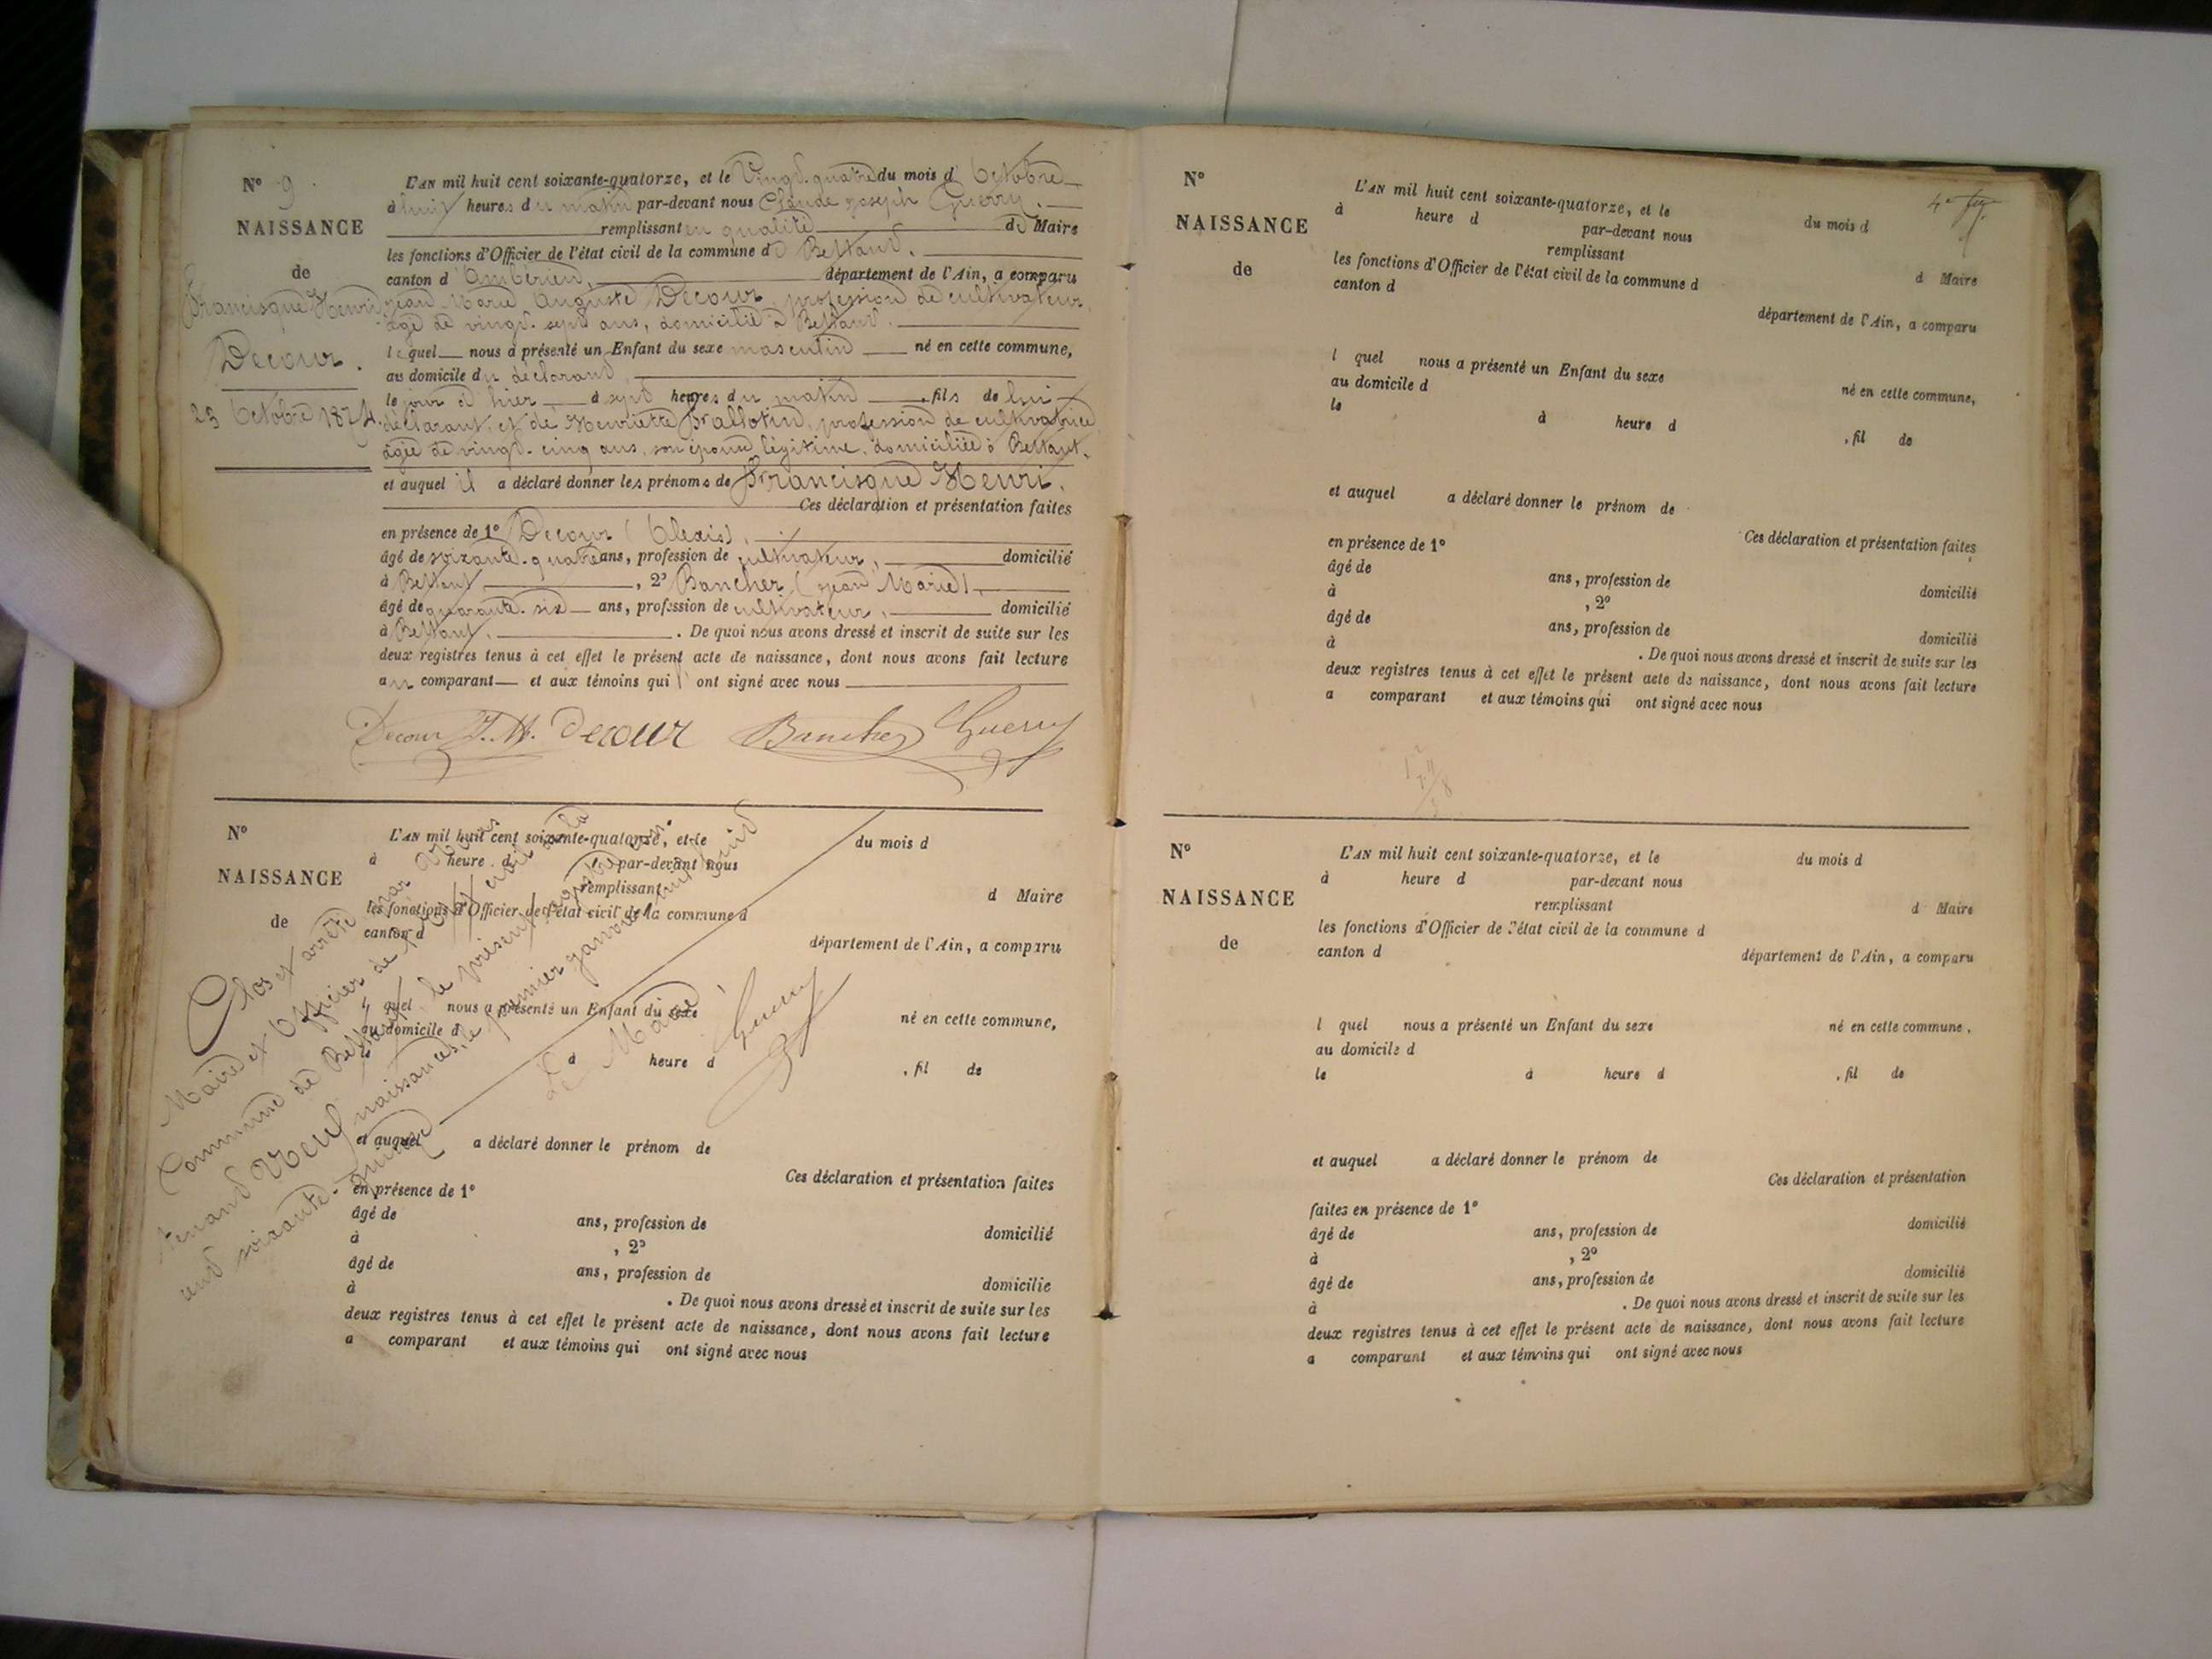 N° 9
NAISSANCE
de
Francisque Henri
Decour.
23 Octobre 1874.
L'AN mil huit cent soixante-quatorze, et le Vingt-quatre du mois d'Octobre
à huit heures du matin par-devant nous Claude Joseph Guerry.
remplissant en qualité de Maire
les fonctions d'Officier de l'état civil de la commune de Bettant.
canton d'Ambérieu, département de l'Ain, a comparu
Jean Marie Auguste Decour, profession de cultivateur,
âgé de vingt-sept ans, domicilié à Bettant.
lequel nous a présenté un Enfant du sexe masculin né en cette commune,
au domicile du déclarant,
le jour d'hier à sept heures du matin, fils de lui
déclarant, et de Henriette Prallotin, profession de cultivatrice
âgée de vingt-cinq ans, son épouse légitime, domiciliée à Bettant.
et auquel il a déclaré donner les prénoms de Francisque Henri.
Ces déclaration et présentation faites
en présence de 1° Decour (Alexis),
âgé de soixante-quatre ans, profession de cultivateur, domicilié
à Bettant, 2° Bancher (Jean Marie),
âgé de quarante-six ans, profession de cultivateur, domicilié
à Bettant. . De quoi nous avons dressé et inscrit de suite sur les
deux registres tenus à cet effet le présent acte de naissance, dont nous avons fait lecture
au comparant et aux témoins qui ont signé avec nous
Decour J. M. Decour Bancher Guerry
N°
NAISSANCE
de
L'AN mil huit cent soixante-quatorze, et le du mois d
à heure d par-devant nous
remplissant d Maire
les fonctions d'Officier de l'état civil de la commune d
canton d
département de l'Ain, a comparu
l quel nous a présenté un Enfant du sexe né en cette commune,
au domicile d
à heure d , fil de
et auquel a déclaré donner le prénom de
Ces déclaration et présentation faites
en présence de 1°
âgé de ans, profession de domicilié
à , 2°
âgé de ans, profession de domicilié
à . De quoi nous avons dressé et inscrit de suite sur les
deux registres tenus à cet effet le présent acte de naissance, dont nous avons fait lecture
a comparant et aux témoins qui ont signé avec nous
Clos et arrêté par Nous
Maire et Officier de l'état civil de la
Commune de Bettant, le présent registre
contenant Neuf naissances, le premier janvier mil huit
cent soixante-quinze
Le Maire
Guerry
N°
NAISSANCE
de
L'AN mil huit cent soixante-quatorze, et le du mois d
à heure d par-devant nous
remplissant d Maire
les fonctions d'Officier de l'état civil de la commune d
canton d département de l'Ain, a comparu
l quel nous a présenté un Enfant du sexe né en cette commune,
au domicile d
le à heure d , fil de
et auquel a déclaré donner le prénom de
Ces déclaration et présentation faites
en présence de 1°
âgé de ans, profession de domicilié
à , 2°
âgé de ans, profession de domicilié
à . De quoi nous avons dressé et inscrit de suite sur les
deux registres tenus à cet effet le présent acte de naissance, dont nous avons fait lecture
a comparant et aux témoins qui ont signé avec nous
N°
NAISSANCE
de
L'AN mil huit cent soixante-quatorze, et le du mois d
à heure d par-devant nous
remplissant d Maire
les fonctions d'Officier de l'état civil de la commune d
canton d département de l'Ain, a comparu
l quel nous a présenté un Enfant du sexe né en cette commune.
au domicile d
le à heure d , fil de
et auquel a déclaré donner le prénom de
Ces déclaration et présentation
faites en présence de 1°
âgé de ans, profession de domicilié
à , 2°
âgé de ans, profession de domicilié
à . De quoi nous avons dressé et inscrit de suite sur les
deux registres tenus à cet effet le présent acte de naissance, dont nous avons fait lecture
a comparant et aux témoins qui ont signé avec nous